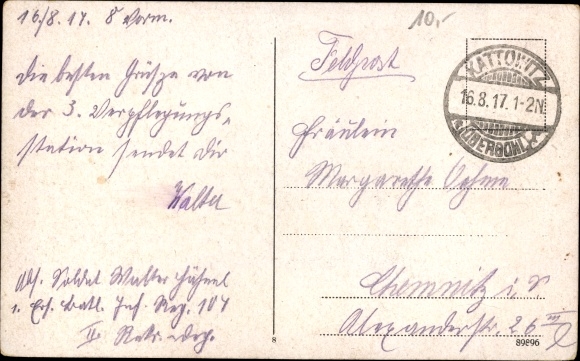 16./8. 17. 8 Vorm.
Die besten Grüße von
der 3. Verpflegungs-
station sendet dir
Walter
Abs. Soldat Walter Hähnel
1. Ers. Batl. Inf. Reg. 104
II Rekr.-Dep.
10,-
Feldpost
KATTOWITZ
16.8.17. 1-2N.
(OBERSCHL.)
Fräulein
Margarethe Oehme
Chemnitz i. S
Alexanderstr. 26 III
8
89896